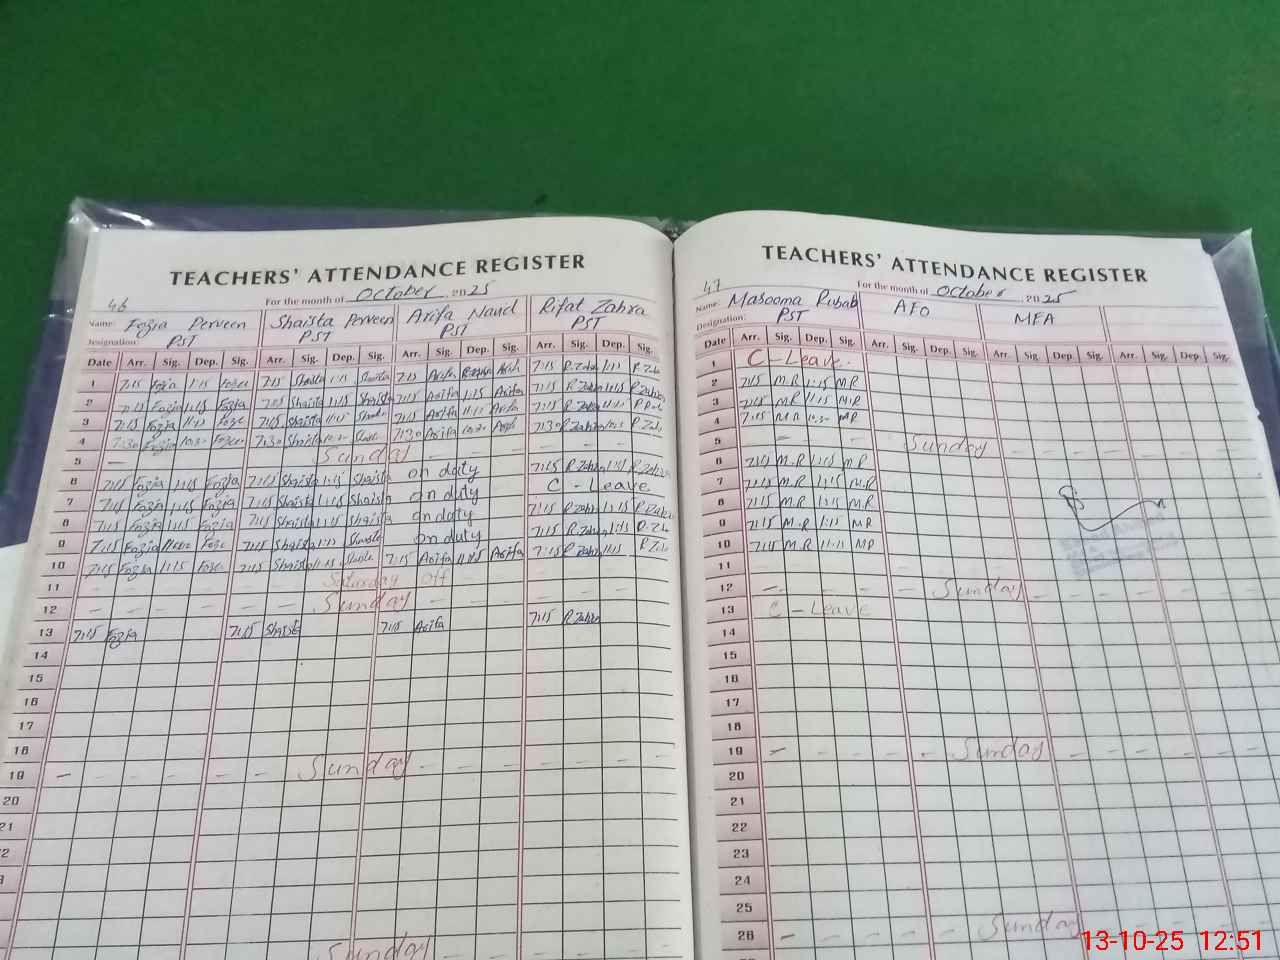 TEACHERS' ATTENDANCE REGISTER
46
For the month of October 2025
Name: Fozia Perveen Shaista Perveen Arifa Naud Rifat Zahra
Designation: PST PST PST PST
Date Arr. Sig. Dep. Sig. Arr. Sig. Dep. Sig. Arr. Sig. Dep. Sig. Arr. Sig. Dep. Sig.
1 7:15 Fozia 1:15 Fozia 7:15 Shaista 1:15 Shaista 7:15 Arifa Arifa 7:15 R.Zahra 1:15 R.Zahra
2 7:15 Fozia 1:15 Fozia 7:15 Shaista 1:15 Shaista 7:15 Arifa 1:15 Arifa 7:15 R.Zahra 1:15 R.Zahra
3 7:15 Fozia 11:15 Fozia 7:15 Shaista 11:15 Shaista 7:15 Arifa 11:15 Arifa 7:15 R.Zahra 11:15 R.Zahra
4 7:30 Fozia 10:30 Fozia 7:30 Shaista 10:30 Shaista 7:30 Arifa 10:30 Arifa 7:30 R.Zahra 10:30 R.Zahra
5 Sunday
6 7:15 Fozia 1:15 Fozia 7:15 Shaista 1:15 Shaista on duty 7:15 R.Zahra 1:15 R.Zahra
7 7:15 Fozia 1:15 Fozia 7:15 Shaista 1:15 Shaista on duty C - Leave
8 7:15 Fozia 1:15 Fozia 7:15 Shaista 1:15 Shaista on duty 7:15 R.Zahra 1:15 R.Zahra
9 7:15 Fozia Fozia 7:15 Shaista 1:15 Shaista on duty 7:15 R.Zahra 1:15 R.Zahra
10 7:15 Fozia 11:15 Fozia 7:15 Shaista 11:15 Shaista 7:15 Arifa 11:15 Arifa 7:15 R.Zahra 11:15 R.Zahra
11 Saturday off
12 Sunday
13 7:15 Fozia 7:15 Shaista 7:15 Arifa 7:15 R.Zahra
14
15
16
17
18
19 Sunday
20
21
Sunday
TEACHERS' ATTENDANCE REGISTER
47
For the month of October 2025
Name: Masooma Rubab AFO MEA
Designation: PST
Date Arr. Sig. Dep. Sig. Arr. Sig. Dep. Sig. Arr. Sig. Dep. Sig. Arr. Sig. Dep. Sig.
1 C - Leave.
2 7:15 M.R 1:15 M.R
3 7:15 M.R 11:15 M.R
4 7:15 M.R 10:30 MR
5 Sunday
6 7:15 M.R 1:15 MR
7 7:15 M.R 1:15 M.R
8 7:15 M.R 1:15 M.R
9 7:15 M.R 1:15 MR
10 7:15 M.R 11:15 MR
11
12 Sunday
13 C - Leave
14
15
16
17
18
19 Sunday
20
21
22
23
24
25
26 Sunday
13-10-25 12:51